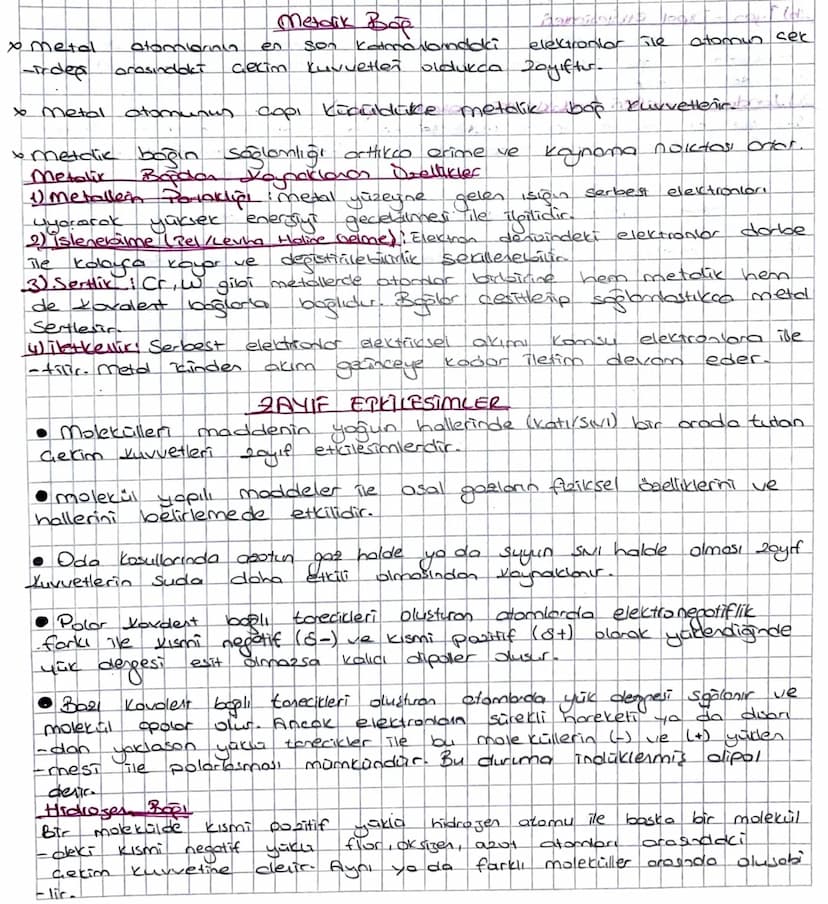 Metalik Bağ
* metal atomlarının en son katmanlarındaki elektronlar ile atomun çek
-irdeği arasındaki çekim kuvvetleri oldukça zayıftır.
* metal atomunun çapı küçüldükçe metalik bağ kuvvetlenir.
* metalik bağın sağlamlığı arttıkça erime ve kaynama noktası artar.
Metalik Bağdan Kaynaklanan Özellikler
1) Metallerin Parlaklığı: metal yüzeyne gelen ışığın serbest elektronları
uyararak yüksek enerjiyi geçebilmesi ile ilgilidir.
2) İşlenebilme (Tel/Levha Haline Gelme): Elektron denizindeki elektronlar darbe
ile kolayca kayar ve değiştirilebilirlik sergilenebilir.
3) Sertlik: Cr, W gibi metallerde atomlar birbirine hem metalik hem
de kovalent bağlarla bağlıdır. Bağlar çeşitlenip sağlamlaştıkça metal
sertleşir.
4) İletkenlik: Serbest elektronlar elektriksel akımı komşu elektronlara ile
-tilir. metal içinden akım geçinceye kadar iletim devam eder.
ZAYIF ETKİLEŞİMLER
• Molekülleri maddenin yoğun hallerinde (katı/sıvı) bir arada tutan
çekim kuvvetleri zayıf etkileşimlerdir.
• molekül yapılı maddeler ile asal gazların fiziksel özelliklerini ve
hallerini belirlemede etkilidir.
• Oda koşullarında azotun gaz halde ya da suyun sıvı halde olması zayıf
kuvvetlerin suda daha etkili olmasından kaynaklanır.
• Polar kovalent bağlı tanecikleri oluşturan atomlarda elektronegatiflik
farkı ile kısmi negatif (δ-) ve kısmi pozitif (δ+) olarak yüklendiğinde
yük dengesi eşit olmazsa kalıcı dipoller oluşur.
• Bazı kovalent bağlı tanecikleri oluşturan atomlarda yük dengesi sağlanır ve
molekül apolar olur. Ancak elektronların sürekli hareketi ya da dışarı
-dan yaklaşan yüklü tanecikler ile bu moleküllerin (-) ve (+) yüklen
-mesi ile polarlaşması mümkündür. Bu duruma indüklenmiş dipol
denir.
Hidrojen Bağı
Bir molekülde kısmi pozitif yüklü hidrojen atomu ile başka bir molekül
-deki kısmi negatif yüklü flor, oksijen, azot atomları arasındaki
çekim kuvvetine denir. Aynı ya da farklı moleküller arasında oluşabi
-lir.